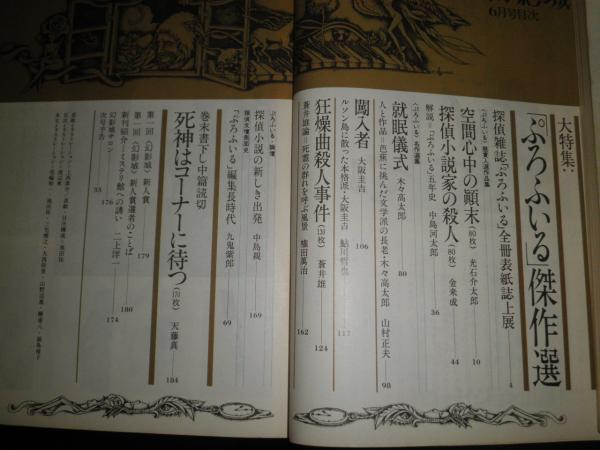 6月号目次
大特集:
「ぷろふいる」傑作選
探偵雑誌「ぷろふいる」全冊表紙誌上展
4
〈ぷろふいる〉懸賞入選作品集
空間心中の顚末(60枚) 光石介太郎
10
探偵小説家の殺人(80枚) 金来成
44
解説・「ぷろふいる」五年史 中島河太郎
36
〈ぷろふいる〉名作選集
就眠儀式 木々高太郎
80
人と作品=芭蕉に挑んだ文学派の長老・木々高太郎 山村正夫
98
闖入者 大阪圭吉
106
ルソン島に散った本格派・大阪圭吉 鮎川哲也
117
狂燥曲殺人事件(130枚) 蒼井雄
124
蒼井雄論・死霊の群れを呼ぶ風景 権田萬治
162
ぷろふいる論壇
探偵小説の新しき出発 中島親
169
探偵文壇側面史
「ぷろふいる」編集長時代 九鬼紫郎
69
巻末書下し中篇読切
死神はコーナーに待つ(170枚) 天藤真
184
第一回〈幻影城〉新人賞
179
第一回〈幻影城〉新人賞選者のことば
180
新刊紹介・ミステリ館への誘い 二上洋一
174
幻影城サロン
176
次号予告
35